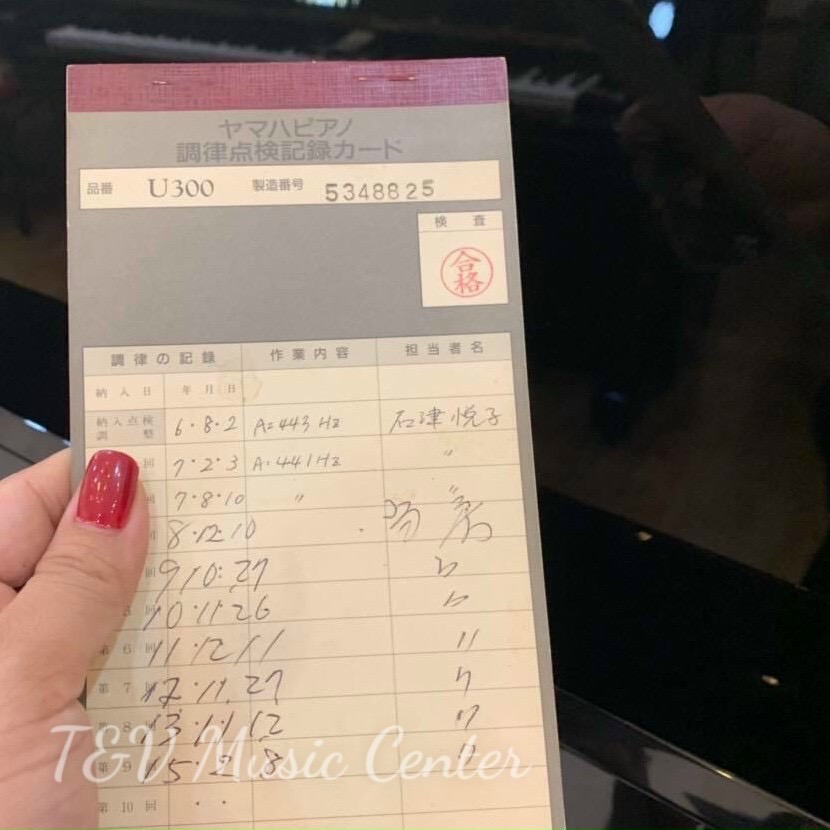 ヤマハピアノ
調律点検記録カード
品番 U300 製造番号 5348825
検査
合格
調律の記録 作業内容 担当者名
納入日 年月日
納入点検調整 6・8・2 A=443 Hz 石津悦子
回 7・2・3 A=441Hz 〃
回 7・8・10 〃 〃
回 8・12・10
回 9・10・27 〃
回 10・11・26 〃
第6回 11・12・11 〃
第7回 12・11・27 〃
第8回 13・11・12 〃
第9回 15・2・8 〃
第10回 ・・
T&V Music Center